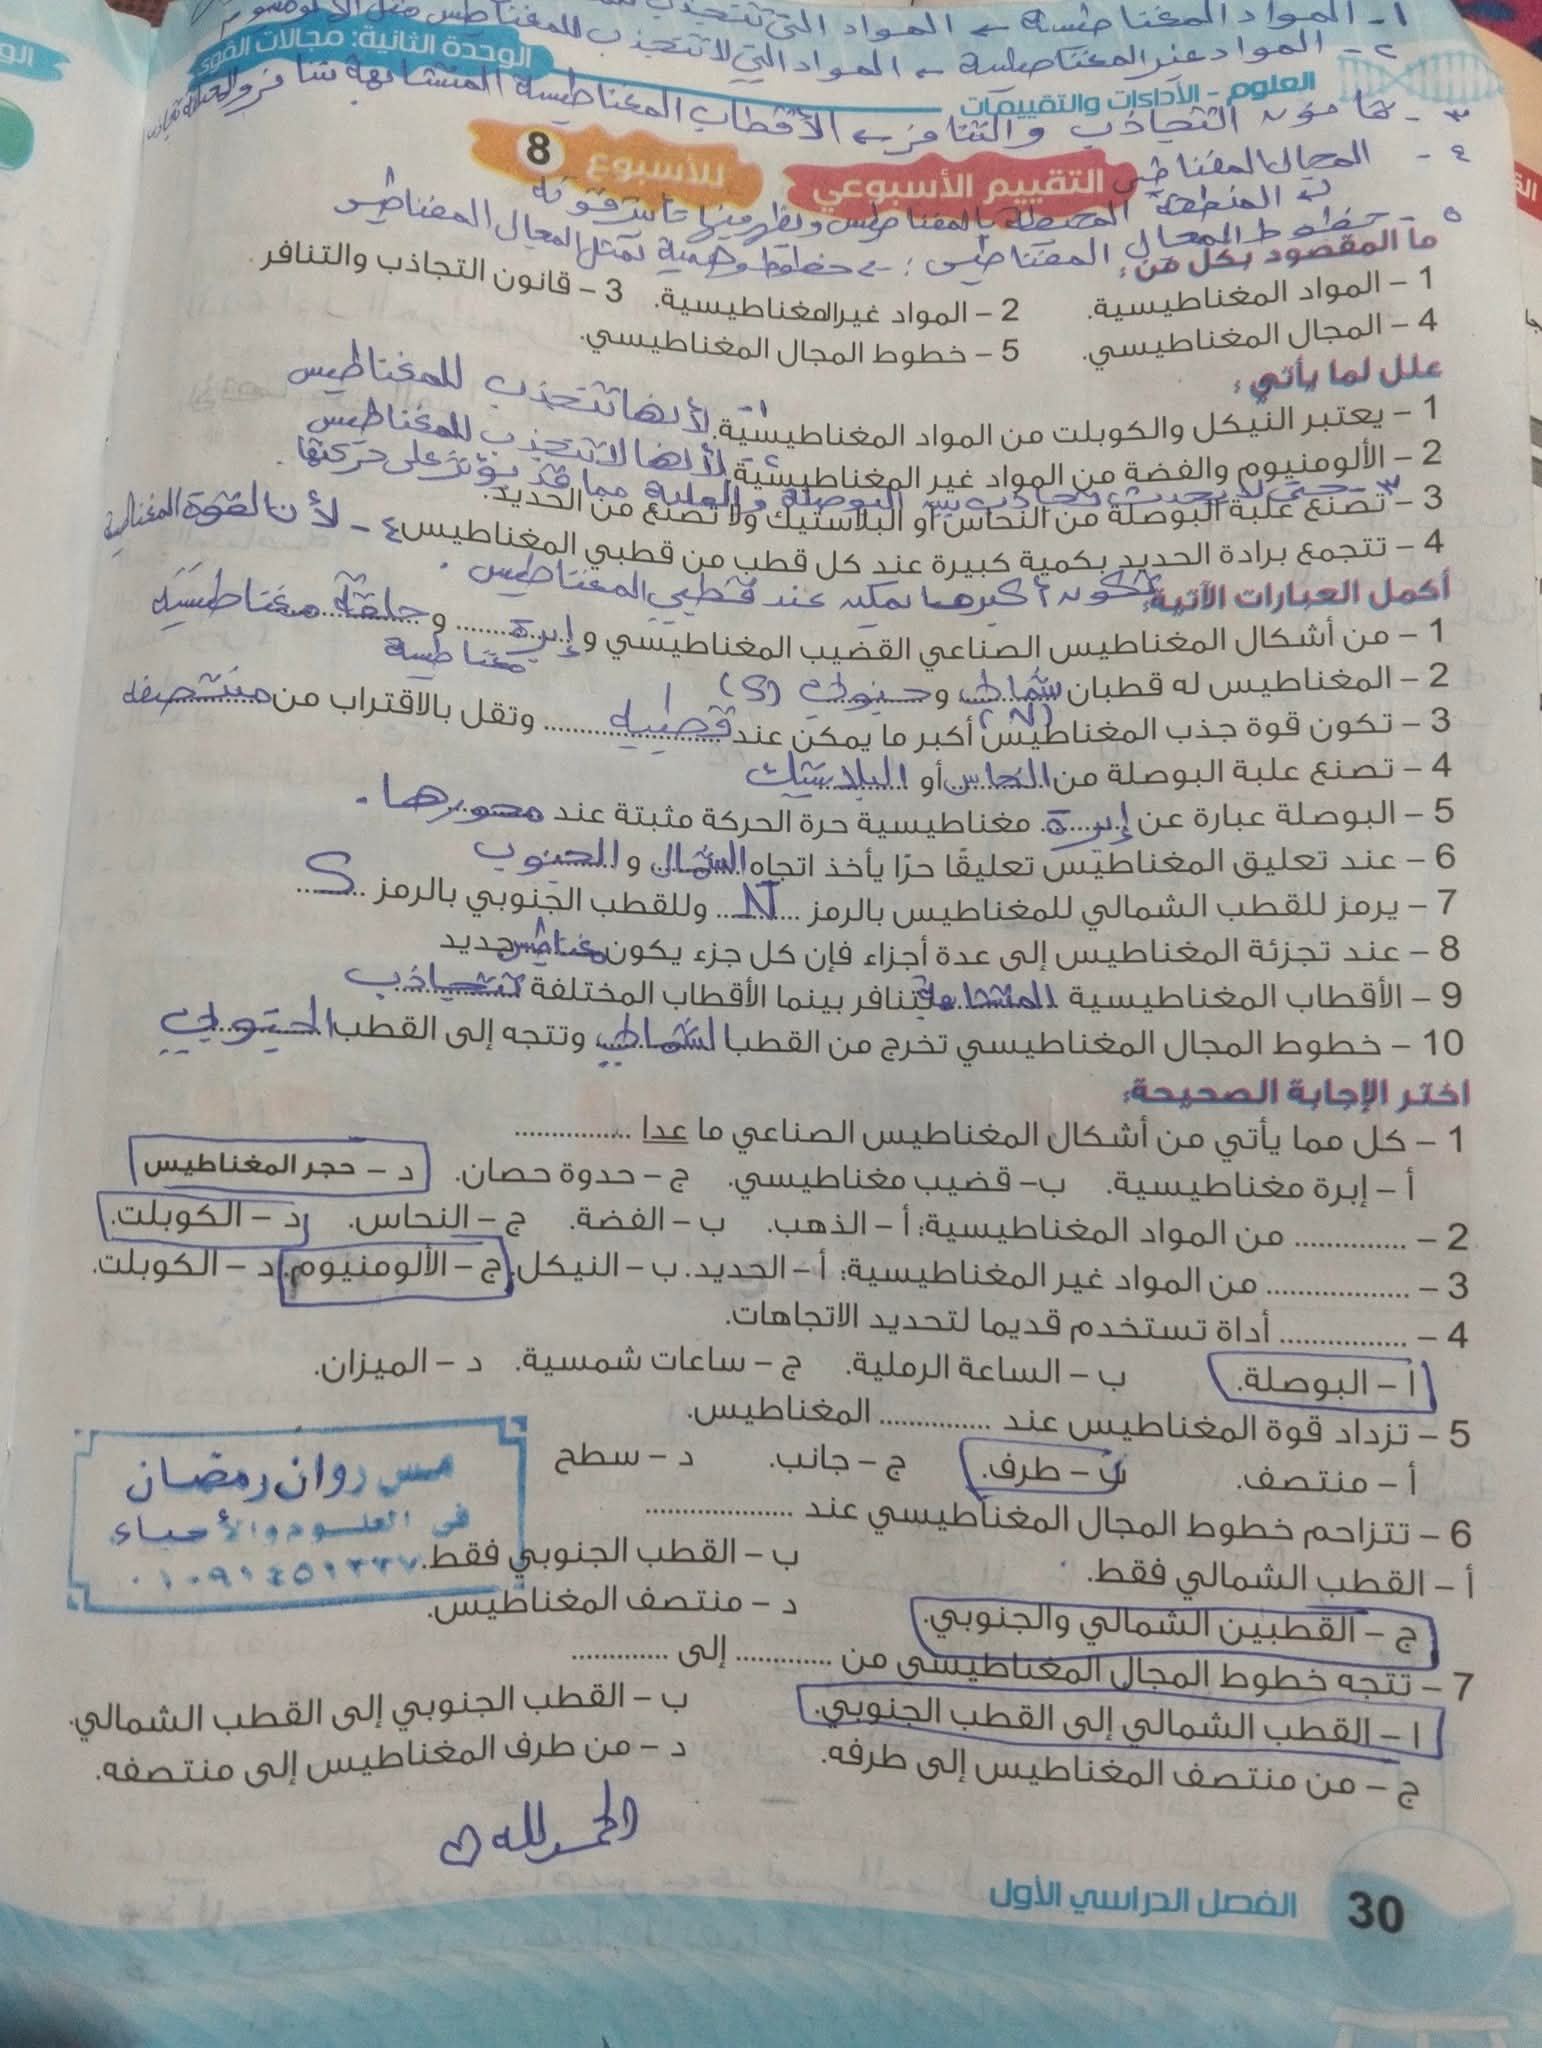 1 - المواد المغناطيسية ← المواد التي تنجذب
2 - المواد غير المغناطيسية ← المواد التي لا تنجذب للمغناطيس مثل الألومنيوم
الوحدة الثانية: مجالات القوى
العلوم - الأداءات والتقييمات
٣ - قانون التجاذب والتنافر ← الأقطاب المغناطيسية المتشابهة تتنافر والمختلفة تتجاذب
التقييم الأسبوعي للأسبوع 8
٤ - المجال المغناطيسي
↳ المنطقة المحيطة بالمغناطيس ويظهر فيها تأثير قوته
٥ - خطوط المجال المغناطيسي: ← خطوط وهمية تمثل المجال المغناطيسي
ما المقصود بكل من:
1 - المواد المغناطيسية. 2 - المواد غير المغناطيسية. 3 - قانون التجاذب والتنافر.
4 - المجال المغناطيسي. 5 - خطوط المجال المغناطيسي.
علل لما يأتي:
1 - يعتبر النيكل والكوبلت من المواد المغناطيسية. ١- لأنها تنجذب للمغناطيس
2 - الألومنيوم والفضة من المواد غير المغناطيسية. ٢- لأنها لا تنجذب للمغناطيس
٣- حتى لا يحدث تجاذب بين البوصلة والعلبة مما قد يؤثر على حركتها.
3 - تصنع علبة البوصلة من النحاس أو البلاستيك ولا تصنع من الحديد.
4 - تتجمع برادة الحديد بكمية كبيرة عند كل قطب من قطبي المغناطيس ٤ - لأن القوة المغناطيسية
تكون أكبر ما يمكن عند قطبي المغناطيس.
أكمل العبارات الآتية:
1 - من أشكال المغناطيس الصناعي القضيب المغناطيسي و إبرة مغناطيسية و حلقة مغناطيسية
2 - المغناطيس له قطبان شمالي (N) و جنوبي (S)
3 - تكون قوة جذب المغناطيس أكبر ما يمكن عند قطبيه وتقل بالاقتراب من منتصفه
4 - تصنع علبة البوصلة من النحاس أو البلاستيك
5 - البوصلة عبارة عن إبرة مغناطيسية حرة الحركة مثبتة عند محورها.
6 - عند تعليق المغناطيس تعليقًا حرًا يأخذ اتجاه الشمال و الجنوب
7 - يرمز للقطب الشمالي للمغناطيس بالرمز N وللقطب الجنوبي بالرمز S
8 - عند تجزئة المغناطيس إلى عدة أجزاء فإن كل جزء يكون مغناطيس جديد
9 - الأقطاب المغناطيسية المتشابهة تتنافر بينما الأقطاب المختلفة تتجاذب
10 - خطوط المجال المغناطيسي تخرج من القطب الشمالي وتتجه إلى القطب الجنوبي
اختر الإجابة الصحيحة:
1 - كل مما يأتي من أشكال المغناطيس الصناعي ما عدا ...............
أ - إبرة مغناطيسية. ب - قضيب مغناطيسي. ج - حدوة حصان. د - حجر المغناطيس
2 - .............. من المواد المغناطيسية: أ - الذهب. ب - الفضة. ج - النحاس. د - الكوبلت.
3 - .................. من المواد غير المغناطيسية: أ - الحديد. ب - النيكل. ج - الألومنيوم. د - الكوبلت.
4 - ................ أداة تستخدم قديما لتحديد الاتجاهات.
أ - البوصلة. ب - الساعة الرملية. ج - ساعات شمسية. د - الميزان.
5 - تزداد قوة المغناطيس عند .............. المغناطيس.
أ - منتصف. ب - طرف. ج - جانب. د - سطح
6 - تتزاحم خطوط المجال المغناطيسي عند ..................
أ - القطب الشمالي فقط. ب - القطب الجنوبي فقط.
ج - القطبين الشمالي والجنوبي. د - منتصف المغناطيس.
7 - تتجه خطوط المجال المغناطيسي من ............ إلى ............
ا - القطب الشمالي إلى القطب الجنوبي. ب - القطب الجنوبي إلى القطب الشمالي.
ج - من منتصف المغناطيس إلى طرفه. د - من طرف المغناطيس إلى منتصفه.
مس روان رمضان
في العلوم والأحياء
الحمد لله ♡
30 الفصل الدراسي الأول